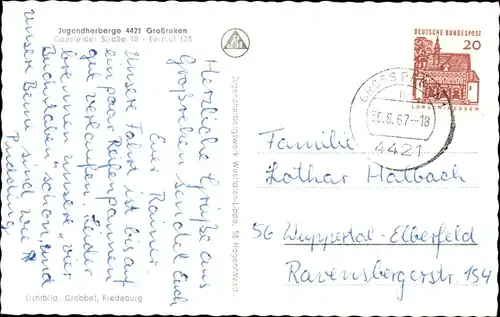 Jugendherberge 4421 Großreken
Coesfelder Straße 18 - Fernruf 123
Herzliche Grüße aus
Großreken sendet Euch
Euer Rainer
Unsere Fahrt ist bis auf
ein paar Reifenpannen
gut verlaufen. Leider
brennen unsere vier
schon, und
unsere Beine sind wie
Pudding
Lichtbild: Grabbel, Fredeburg
Jugendherbergswerk Westfalen-Lippe, 58 Hagen/Westf.
DEUTSCHE BUNDESPOST
20
LORSCH/HESSEN
.8.67-18
4421
Familie
Lothar Halbach
56 Wuppertal-Elberfeld
Ravensbergerstr 154